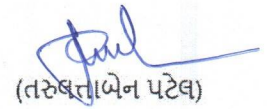 (તરુલત્તાબેન પટેલ)